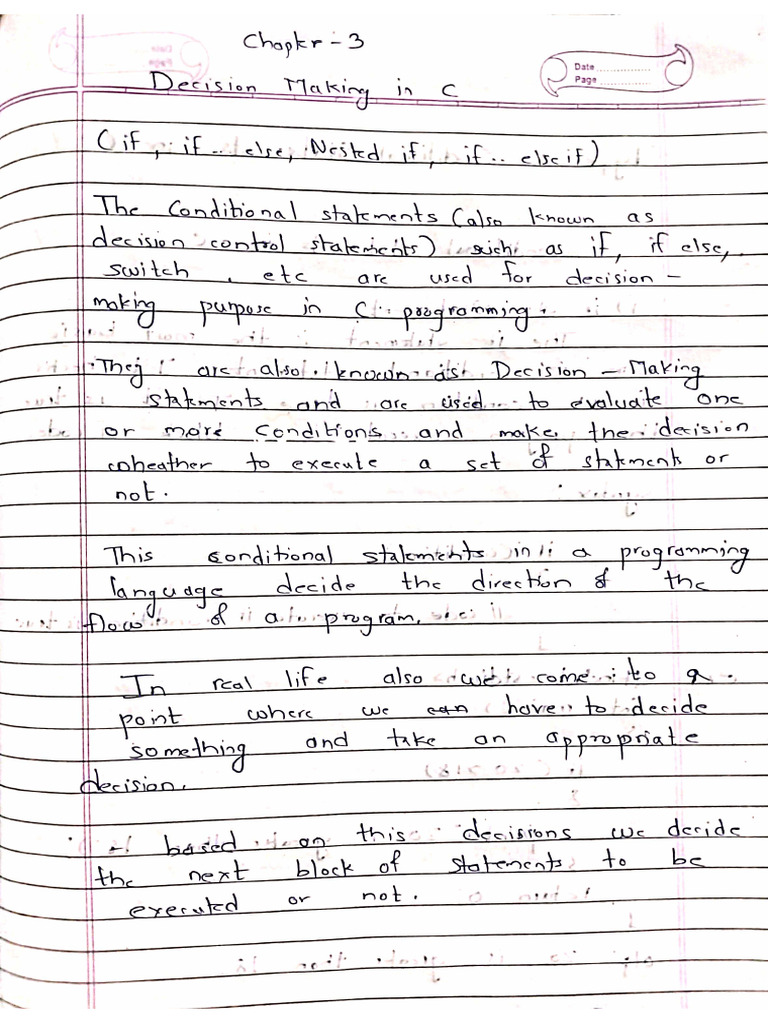 Chapter - 3
Date
Page
Decision Making in C
(if, if.. else, Nested if, if.. else if)
The Conditional statements (also known as
decision control statements) such as if, if else,
switch, etc are used for decision -
making purpose in C programming.
They are also known as Decision - Making
statements and are used to evaluate one
or more conditions and make the decision
wheather to execute a set of statements or
not.
This conditional statements in a programming
language decide the direction of the
flow of a program.
In real life also we come to a
point where we can have to decide
something and take an appropriate
decision.
- based on this decisions we decide
the next block of statements to be
executed or not.